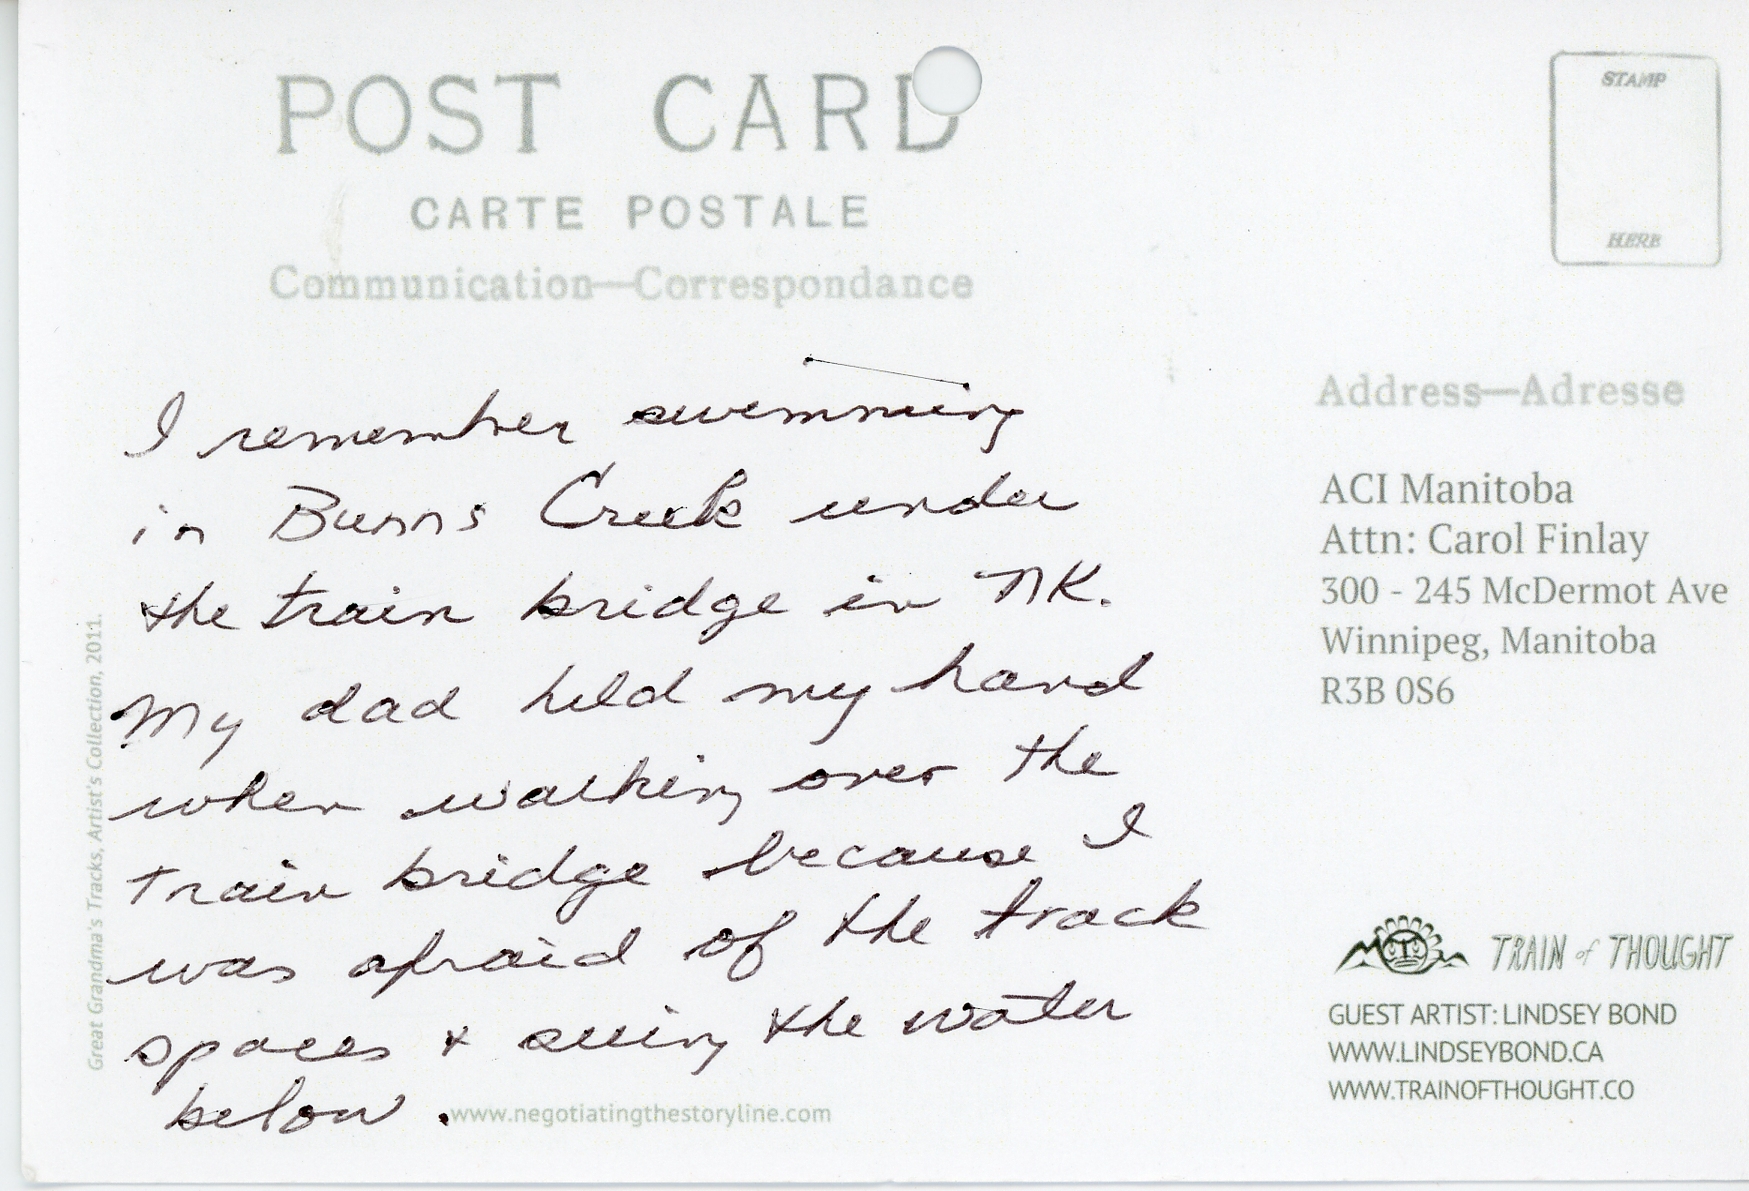 POST CARD
CARTE POSTALE
Communication—Correspondance
STAMP
HERE
I remember swimming
in Bunns Creek under
the train bridge in NK.
My dad held my hand
when walking over the
train bridge because I
was afraid of the track
spaces + seeing the water
below.
www.negotiatingthestoryline.com
Great Grandma's Tracks, Artist's Collection, 2011.
Address—Adresse
ACI Manitoba
Attn: Carol Finlay
300 - 245 McDermot Ave
Winnipeg, Manitoba
R3B 0S6
TRAIN of THOUGHT
GUEST ARTIST: LINDSEY BOND
WWW.LINDSEYBOND.CA
WWW.TRAINOFTHOUGHT.CO